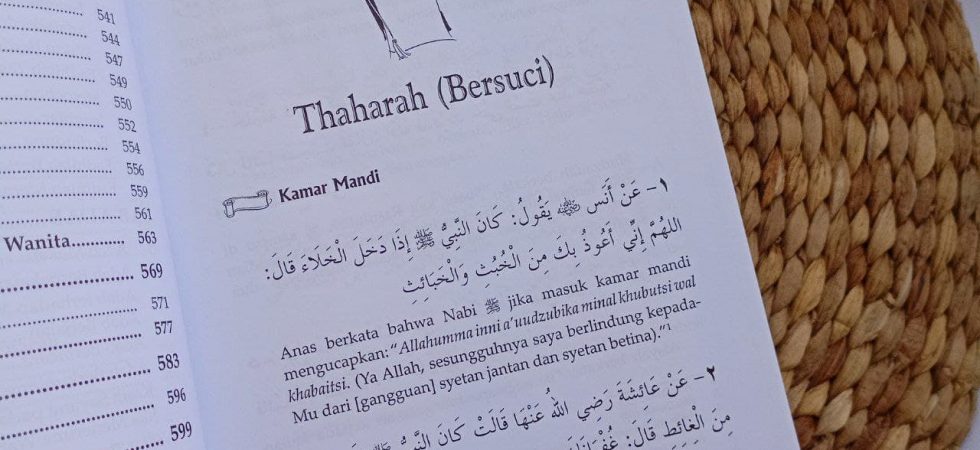 541
544
547
549
550
552
554
556
559
561
Wanita............ 563
569
571
577
583
596
599
Thaharah (Bersuci)
Kamar Mandi
١- عَنْ أَنَسٍ ﷺ يَقُولُ: كَانَ النَّبِيُّ ﷺ إِذَا دَخَلَ الْخَلَاءَ قَالَ:
اللهُمَّ إِنِّي أَعُوذُ بِكَ مِنَ الْخُبُثِ وَالْخَبَائِثِ
Anas berkata bahwa Nabi ﷺ jika masuk kamar mandi
mengucapkan: "Allahumma inni a'uudzubika minal khubutsi wal
khabaitsi. (Ya Allah, sesungguhnya saya berlindung kepada-
Mu dari [gangguan] syetan jantan dan syetan betina)."¹
٢- عَنْ عَائِشَةَ رَضِيَ اللهُ عَنْهَا قَالَتْ كَانَ النَّبِيُّ
مِنَ الْغَائِطِ قَالَ: غُفْرَانَكَ